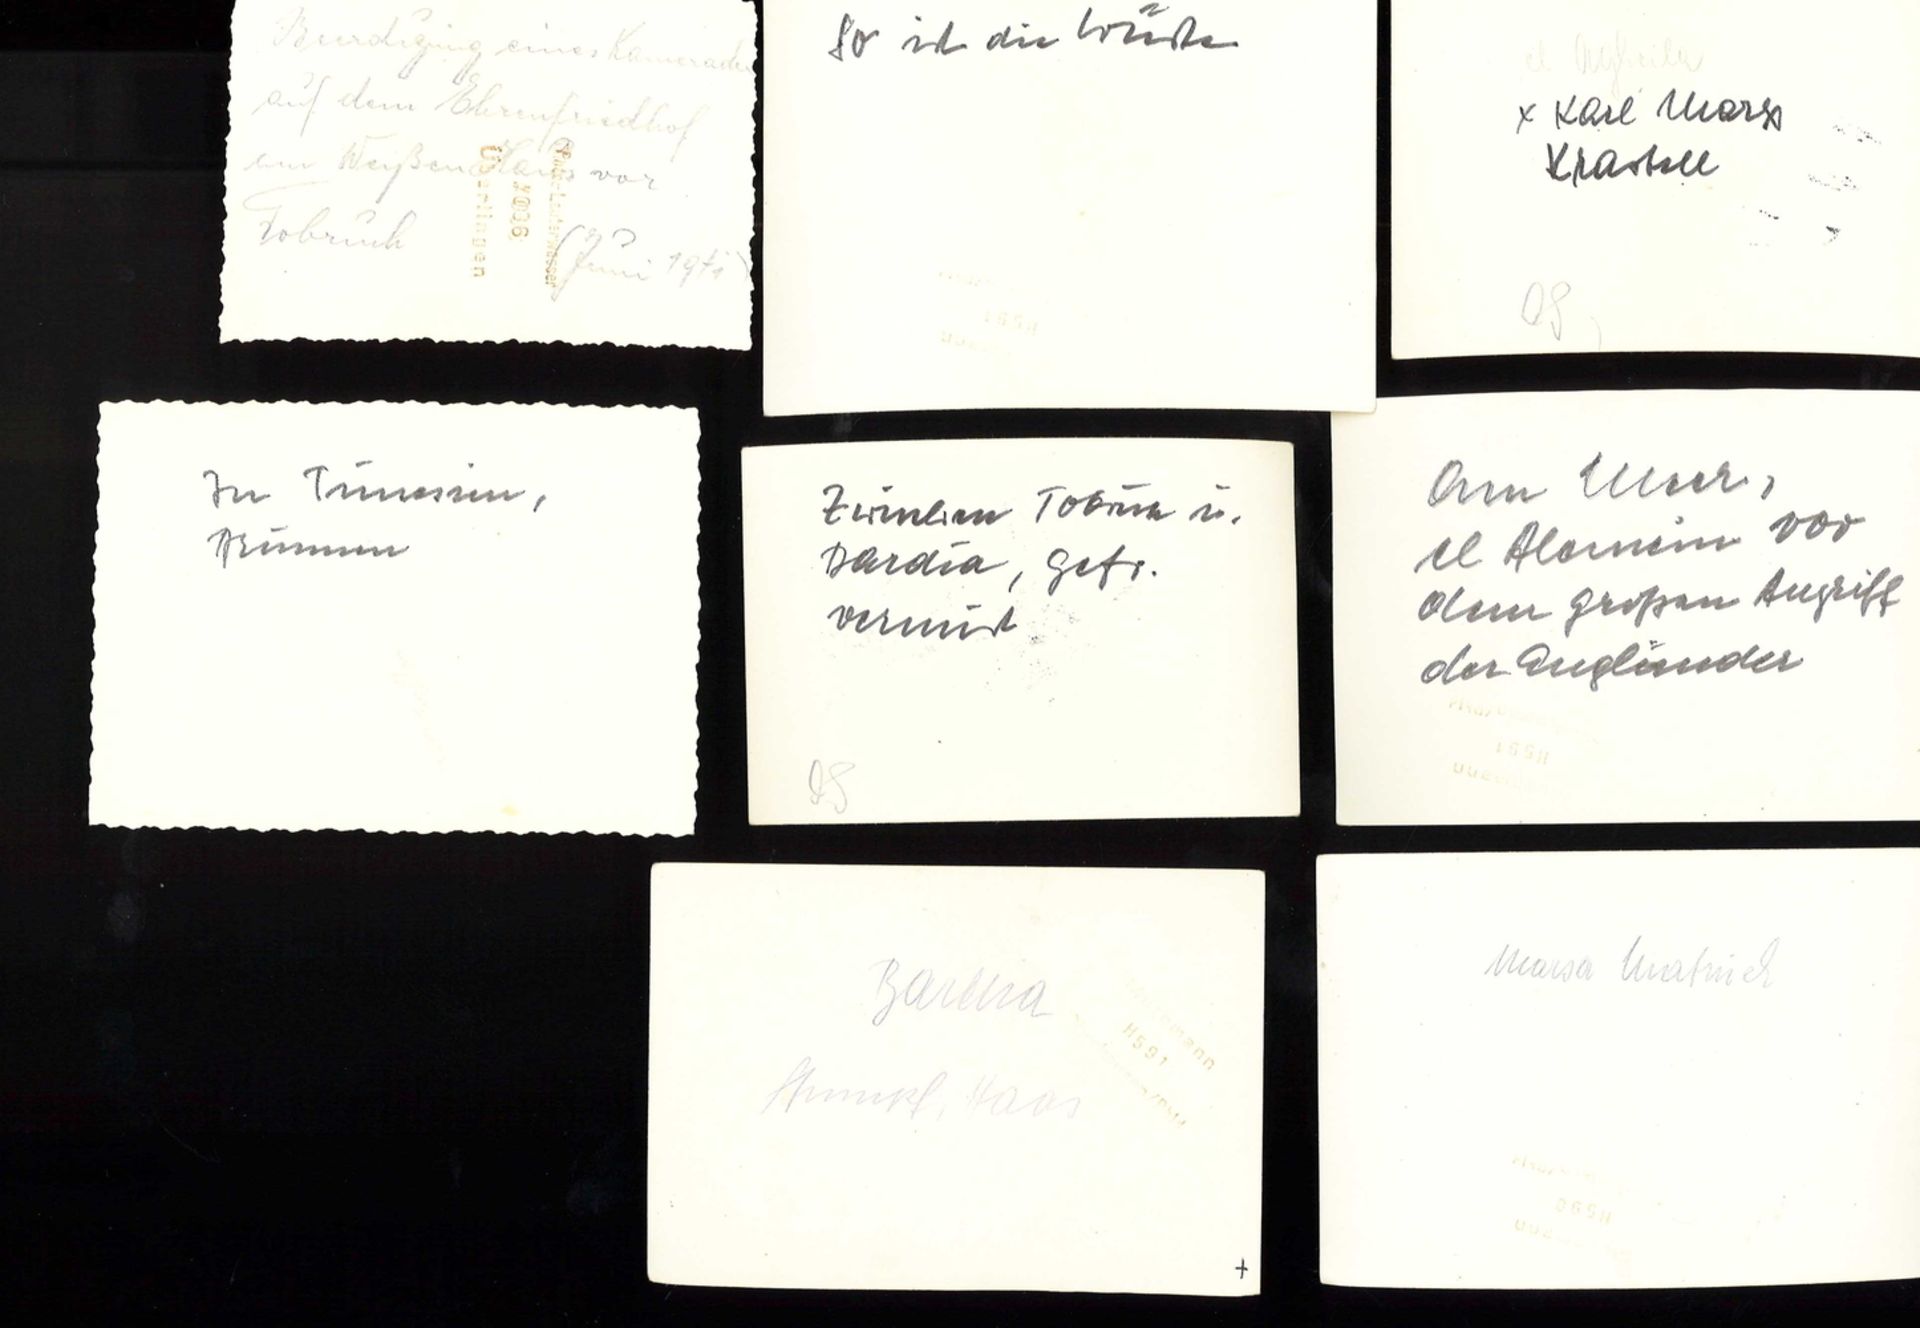 Beerdigung eines Kameraden
auf dem Ehrenfriedhof
am Weißen Haus vor
Tobruch
Juni 194
Photo-Lauterwasser
Überlingen
So ist die Wüste
el Agheila
x Karl Marx
In Tunesien,
Brunnen
Zwischen Tobruk u.
Bardia, Gefr.
vermisst
Am Meer,
el Alamein vor
dem großen Angriff
der Engländer
H591
Barkha
Haas
H591
+
Marsa Matruch
H590